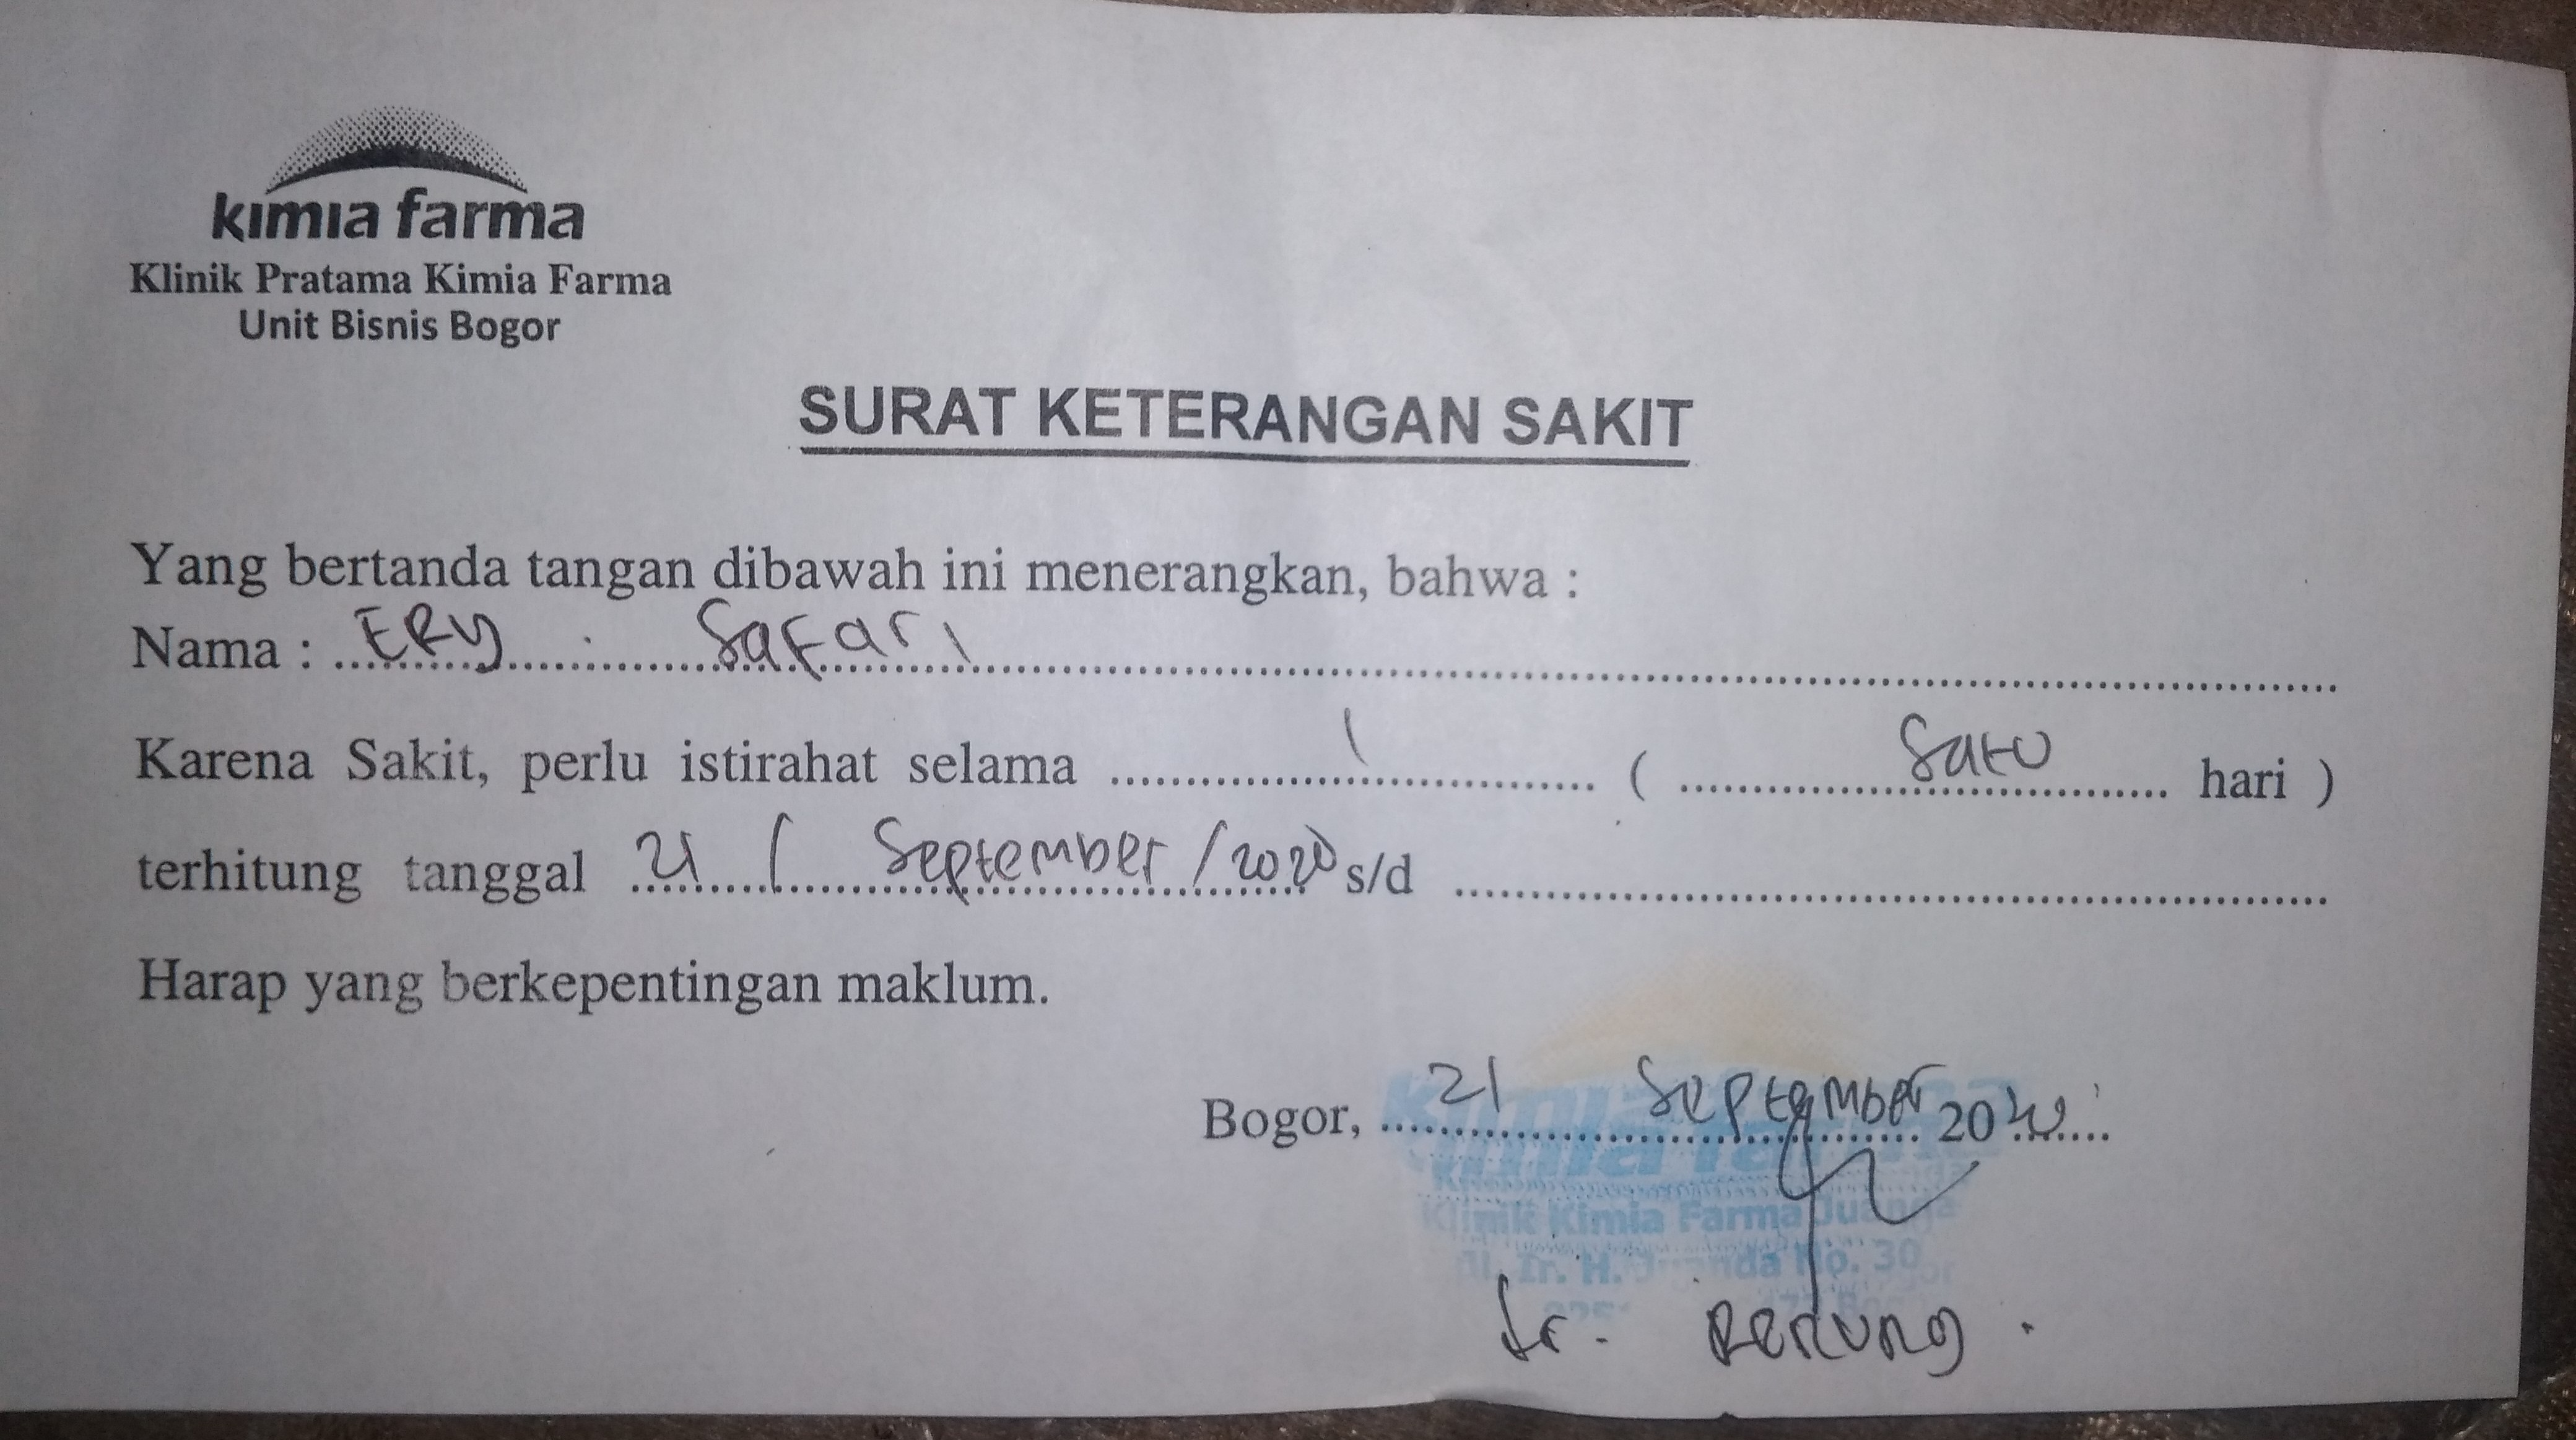 kimia farma
Klinik Pratama Kimia Farma
Unit Bisnis Bogor
SURAT KETERANGAN SAKIT
Yang bertanda tangan dibawah ini menerangkan, bahwa :
Nama : ERy Safari
Karena Sakit, perlu istirahat selama 1 ( Satu hari )
terhitung tanggal 21 / September / 2020 s/d
Harap yang berkepentingan maklum.
Bogor, 21 September 2020
kimia farma
Klinik Kimia Farma Juanda
Jl. Ir. H. Juanda No. 30
dr.